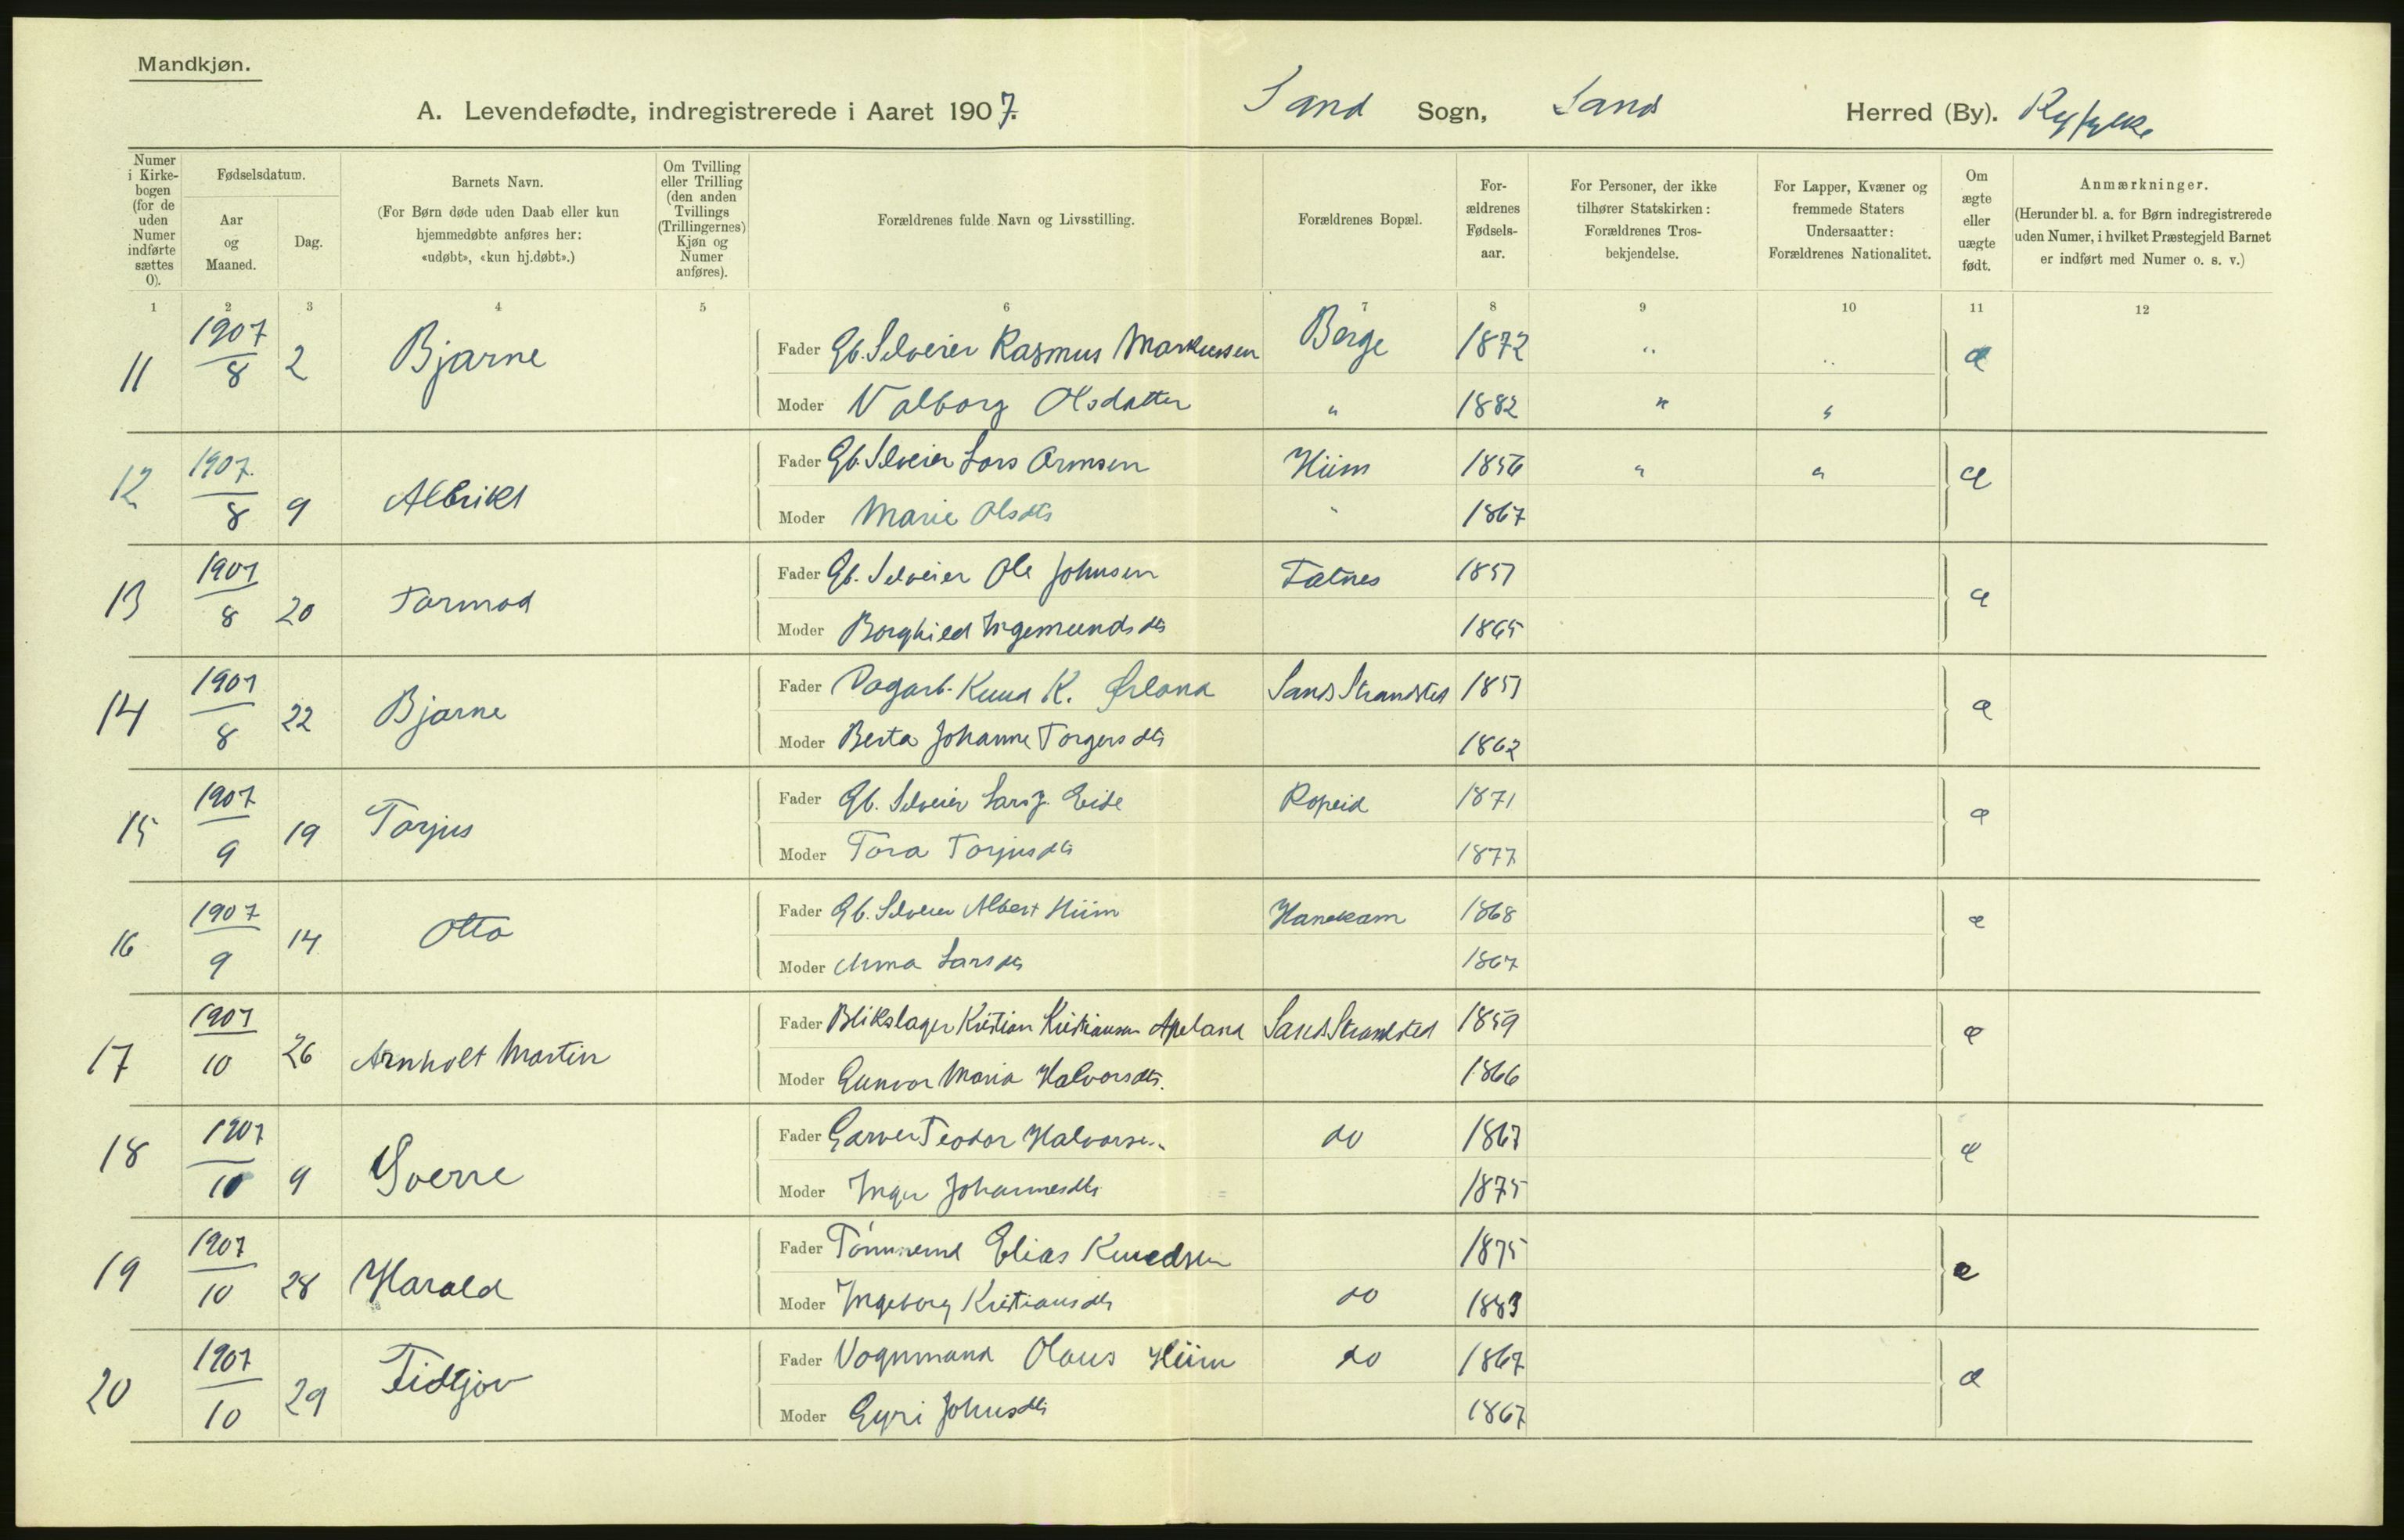 Mandkjøn.
A. Levendefødte, indregistrerede i Aaret 1907. Sand Sogn, Sand Herred (By). Ryfylke
Numer i Kirkebogen (for de uden Numer indførte sættes 0).
Fødselsdatum.
Aar og Maaned.
Dag.
Barnets Navn.
(For Børn døde uden Daab eller kun hjemmedøbte anføres her: «udøbt», «kun hj.døbt».)
Om Tvilling eller Trilling (den anden Tvillings (Trillingernes) Kjøn og Numer anføres).
Forældrenes fulde Navn og Livsstilling.
Forældrenes Bopæl.
Forældrenes Fødselsaar.
For Personer, der ikke tilhører Statskirken: Forældrenes Trosbekjendelse.
For Lapper, Kvæner og fremmede Staters Undersaatter: Forældrenes Nationalitet.
Om ægte eller uægte født.
Anmærkninger.
(Herunder bl. a. for Børn indregistrerede uden Numer, i hvilket Præstegjeld Barnet er indført med Numer o. s. v.)
1 2 3 4 5 6 7 8 9 10 11 12
11 1907/8 2 Bjarne Fader Gb. Selveier Rasmus Markussen Berge 1872 " " æ
Moder Valborg Olsdatter " 1882 " "
12 1907/8 9 Albrikt Fader Gb. Selveier Lars Ormsen Hiim 1856 " " æ
Moder Marie Olsdtr " 1867
13 1907/8 20 Tormod Fader Gb. Selveier Ole Johnsen Fatnes 1857 æ
Moder Borghild Ingemundsdtr 1865
14 1907/8 22 Bjarne Fader Dagarb. Knud K. Øvland Sands Strandsted 1857 æ
Moder Berta Johanne Torgersdtr 1862
15 1907/9 19 Torjus Fader Gb. Selveier Lars J. Eide Ropeid 1871 æ
Moder Tora Torjusdtr 1877
16 1907/9 14 Otto Fader Gb. Selveier Albert Hiim Hanekam 1868 æ
Moder Anna Larsdtr 1867
17 1907/10 26 Arnholt Martin Fader Blikslager Kristian Kristiansen Apeland Sands Strandsted 1859 æ
Moder Gunvor Maria Halvorsdtr. 1866
18 1907/10 9 Sverre Fader Garver Teodor Halvorsen do 1867 æ
Moder Inger Johannesdtr 1875
19 1907/10 28 Harald Fader Tømmermd Elias Knudsen 1875 æ
Moder Ingeborg Kristiansdtr do 1883
20 1907/10 29 Fidtjov Fader Vognmand Olaus Hiim do 1867 æ
Moder Gyri Johnsdtr 1867